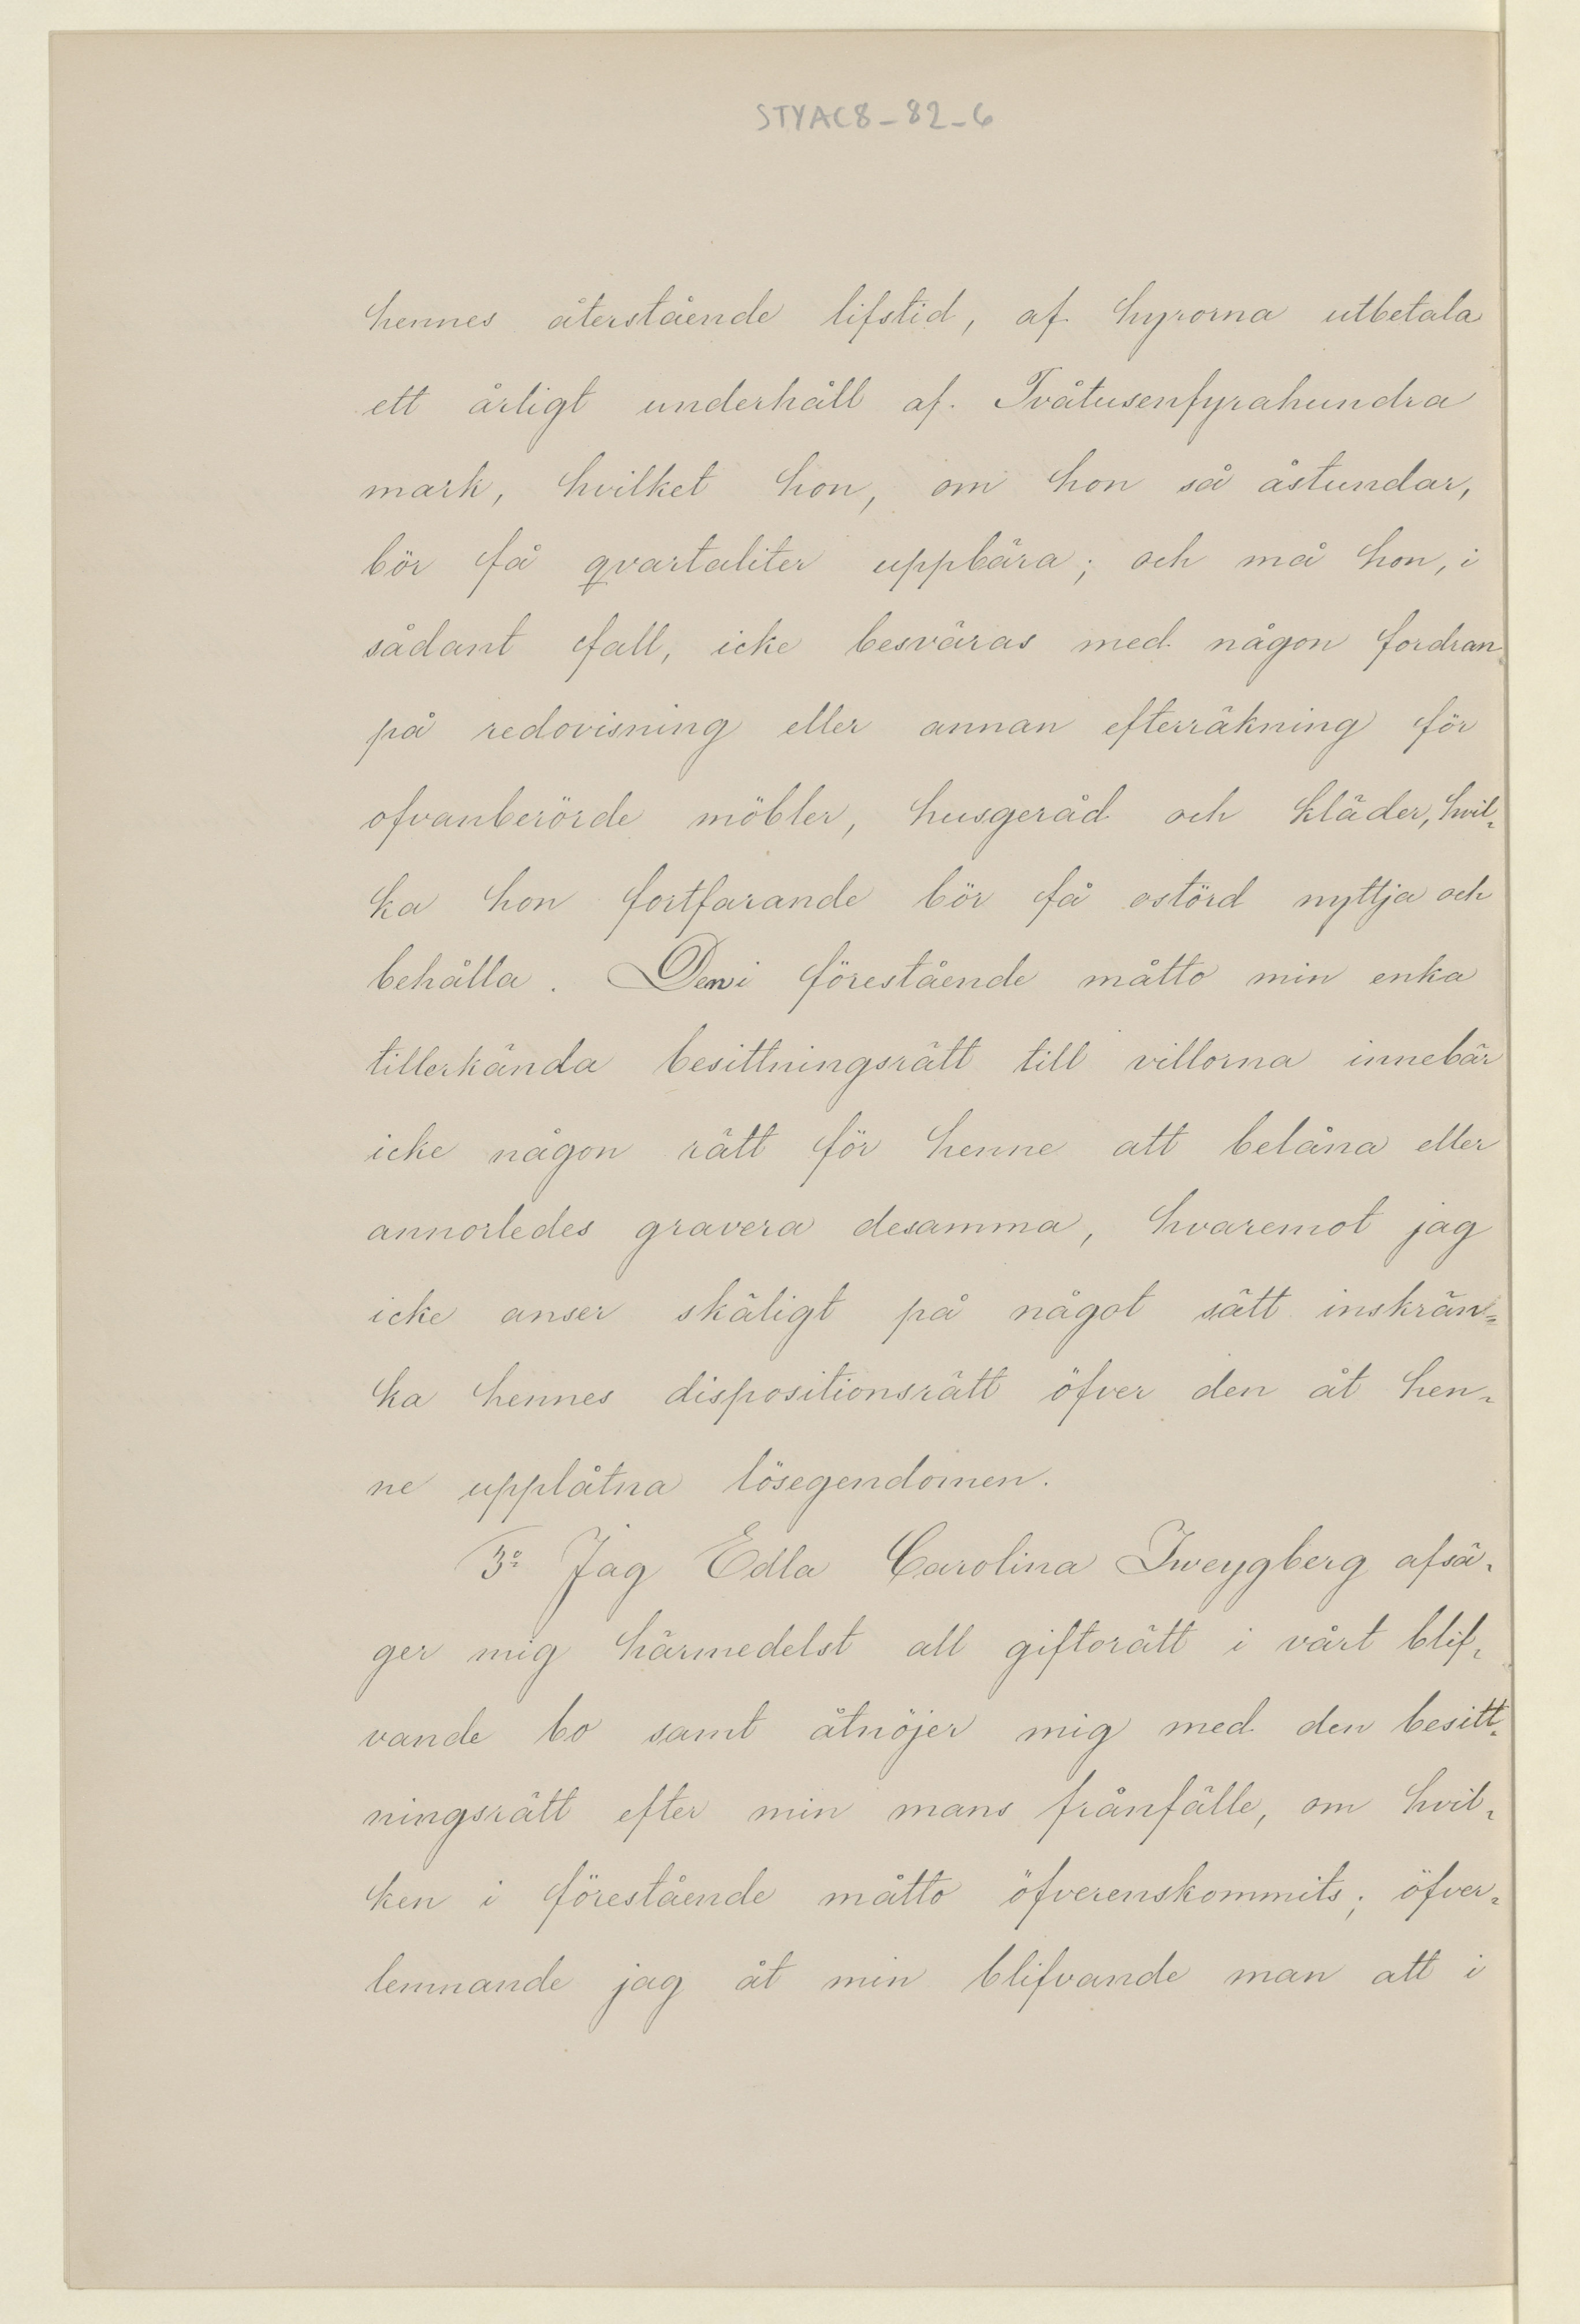 STYAC8-82-6
hennes återstående lifstid, af hyrorna utbetala
ett årligt underhåll af Tvåtusenfyrahundra
mark, hvilket hon, om hon så åstundar,
bör få qvartaliter uppbära; och må hon, i
sådant fall, icke besväras med någon fordran
på redovisning eller annan efterräkning för
ofvanberörde möbler, husgeråd och kläder, hvil-
ka hon fortfarande bör få ostörd nyttja och
behålla. Den i förestående måtto min enka
tillerkända besittningsrätt till villorna innebär
icke någon rätt för henne att belåna eller
annorledes gravera desamma, hvaremot jag
icke anser skäligt på något sätt inskrän=
ka hennes dispositionsrätt öfver den åt hen-
ne upplåtna lösegendomen.
3o Jag Edla Carolina Iweygberg afsä-
ger mig härmedelst all giftorätt i vårt blif-
vande bo samt åtnöjer mig med den besitt-
ningsrätt efter min mans frånfälle, om hvil-
ken i förestående måtto öfverenskommits; öfver-
lemnande jag åt min blifvande man att i